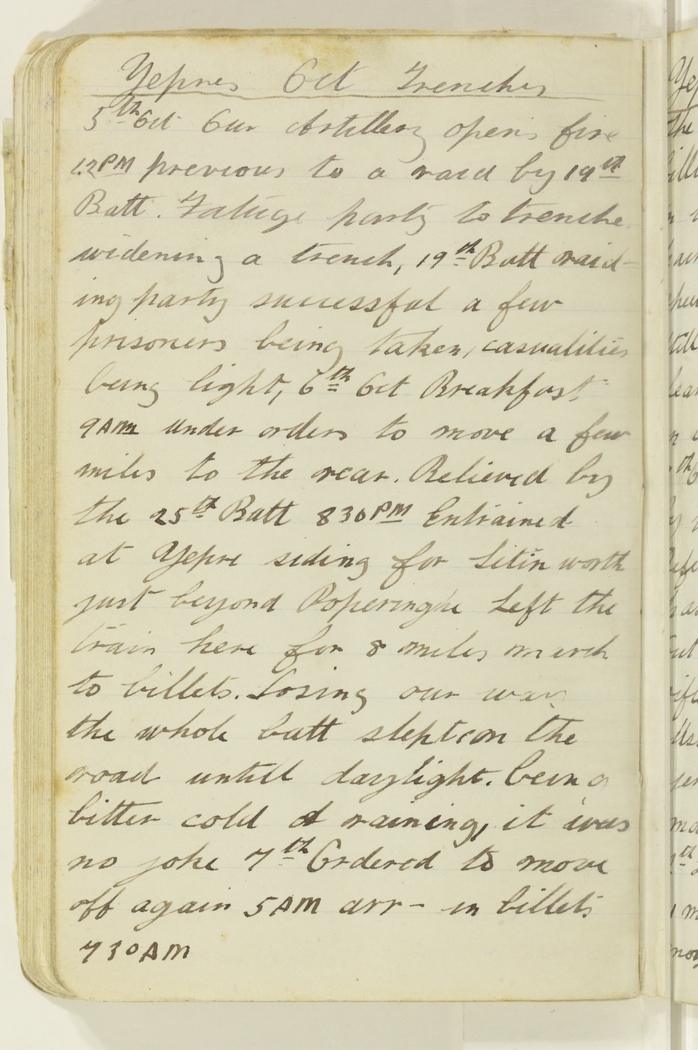 Yepres Oct Trenches
5th Oct Our Artillery opens fire
12PM previous to a raid by 19th
Batt. Fatuge party to trenche
widening a trench, 19th Batt raid-
ing party successful a few
prisoners being taken, casualities
being light, 6th Oct Breakfast
9AM under orders to move a few
miles to the rear. Relieved by
the 25th Batt 830PM Entrained
at Yepre siding for
just beyond Poperinghe Left the
train here for 8 miles march
to billets. Losing our way
the whole batt slept on the
road untill daylight. being
bitter cold & raining, it was
no joke 7th Ordered to move
off again 5AM arr - in billets
730AM